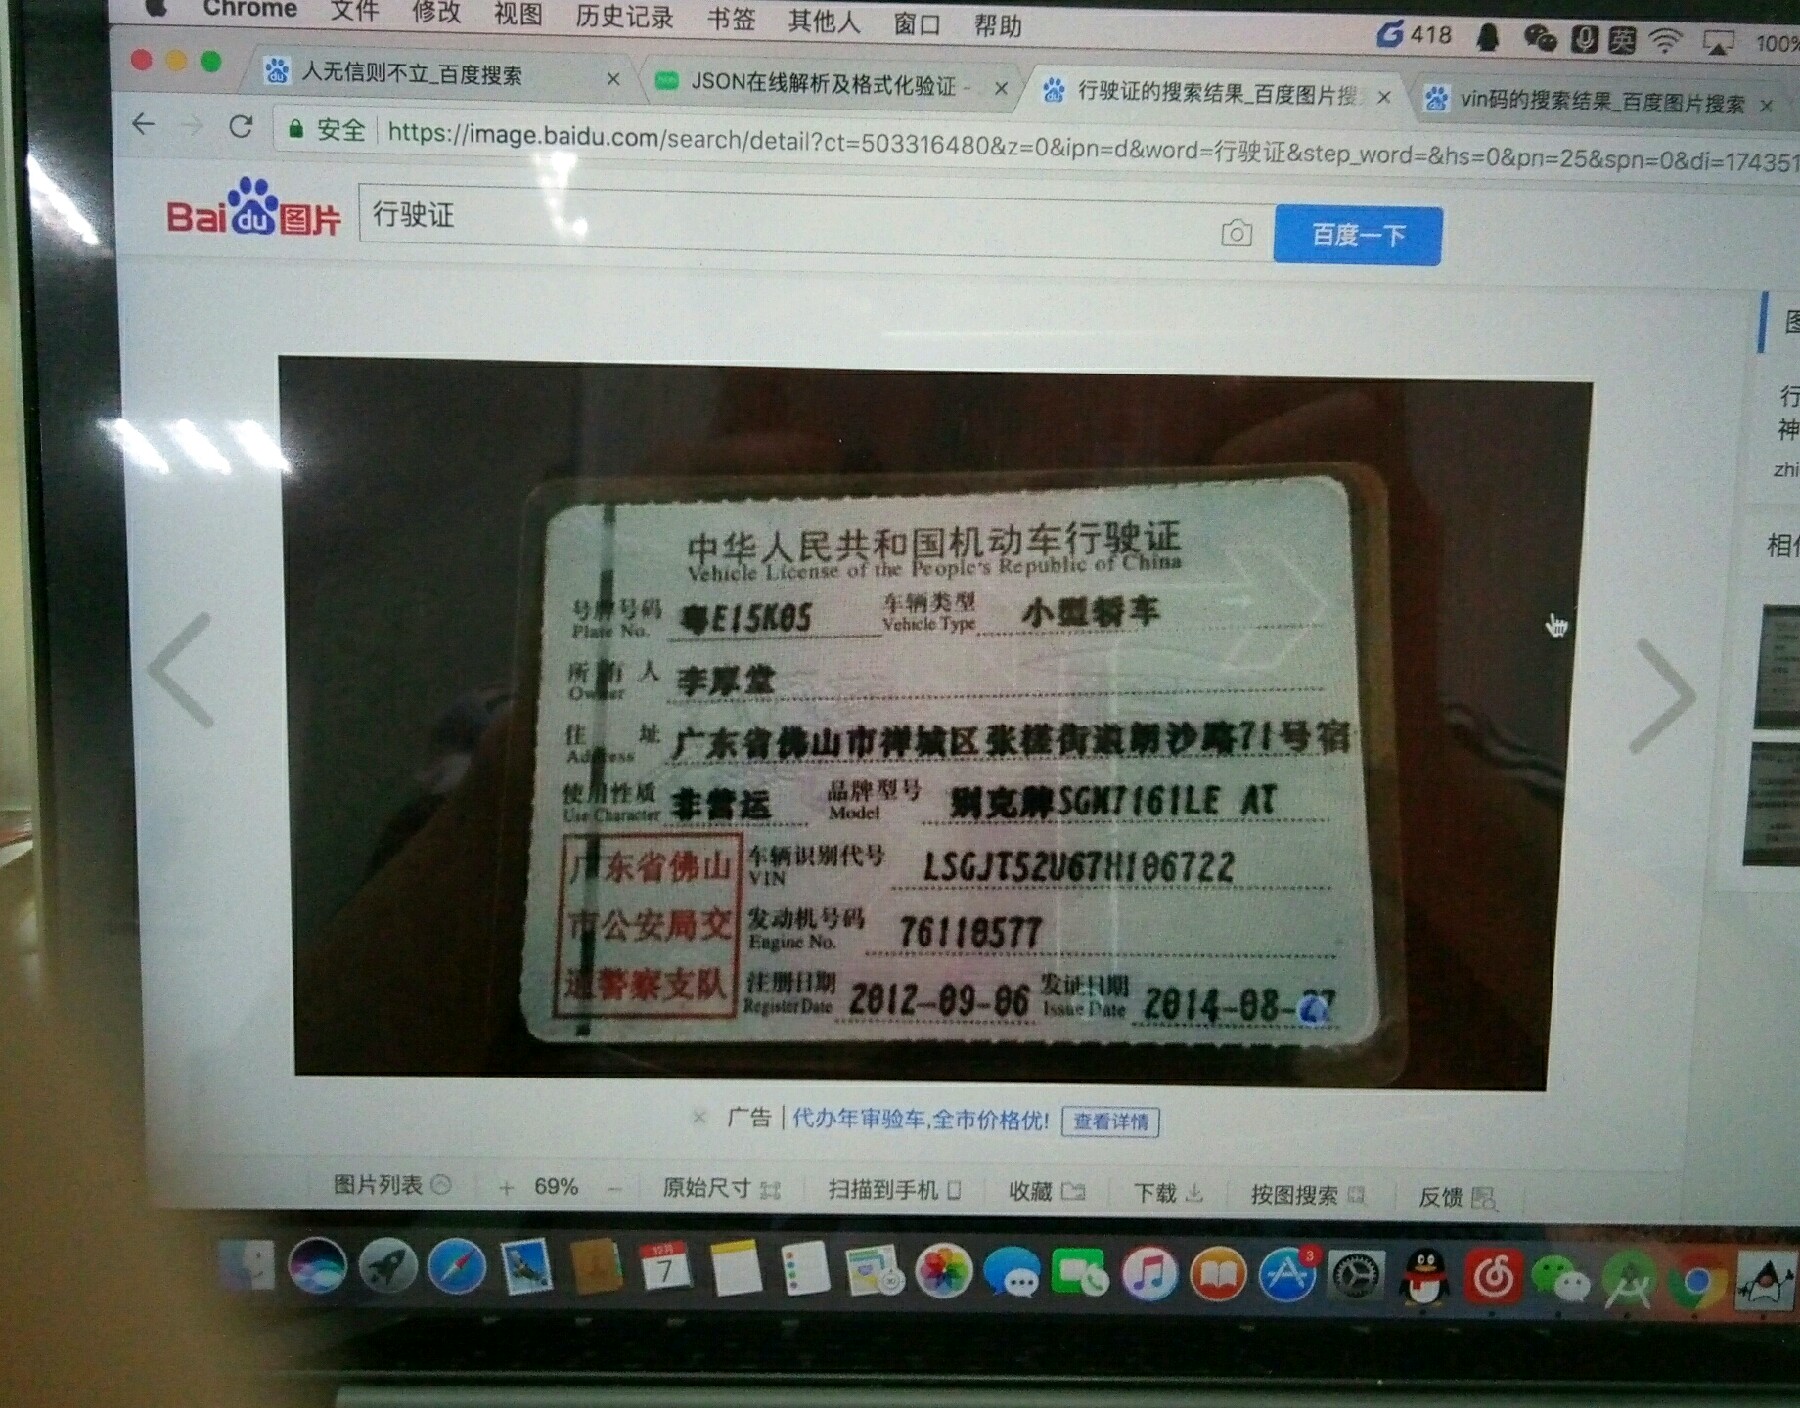 Chrome 文件 修改 视图 历史记录 书签 其他人 窗口 帮助 418 英 100%
人无信则不立_百度搜索 × JSON在线解析及格式化验证 - × 行驶证的搜索结果_百度图片搜 × vin码的搜索结果_百度图片搜索 ×
安全 https://image.baidu.com/search/detail?ct=503316480&z=0&ipn=d&word=行驶证&step_word=&hs=0&pn=25&spn=0&di=174351
Bai du 图片 行驶证 百度一下
行
神
zhi
中华人民共和国机动车行驶证
Vehicle License of the People's Republic of China
号牌号码 粤E15K05 车辆类型 小型轿车
Plate No. Vehicle Type
所有人 李厚堂
Owner
住址 广东省佛山市禅城区张槎街道朗沙路71号宿
Address
使用性质 非营运 品牌型号 别克牌SGM7161LE AT
Use Character Model
广东省佛山 车辆识别代号 LSGJT52U67H106722
VIN
市公安局交 发动机号码 76110577
Engine No.
通警察支队 注册日期 2012-09-06 发证日期 2014-08-27
Register Date Issue Date
× 广告 代办年审验车,全市价格优! 查看详情
图片列表 + 69% − 原始尺寸 扫描到手机 收藏 下载 按图搜索 反馈
7
3